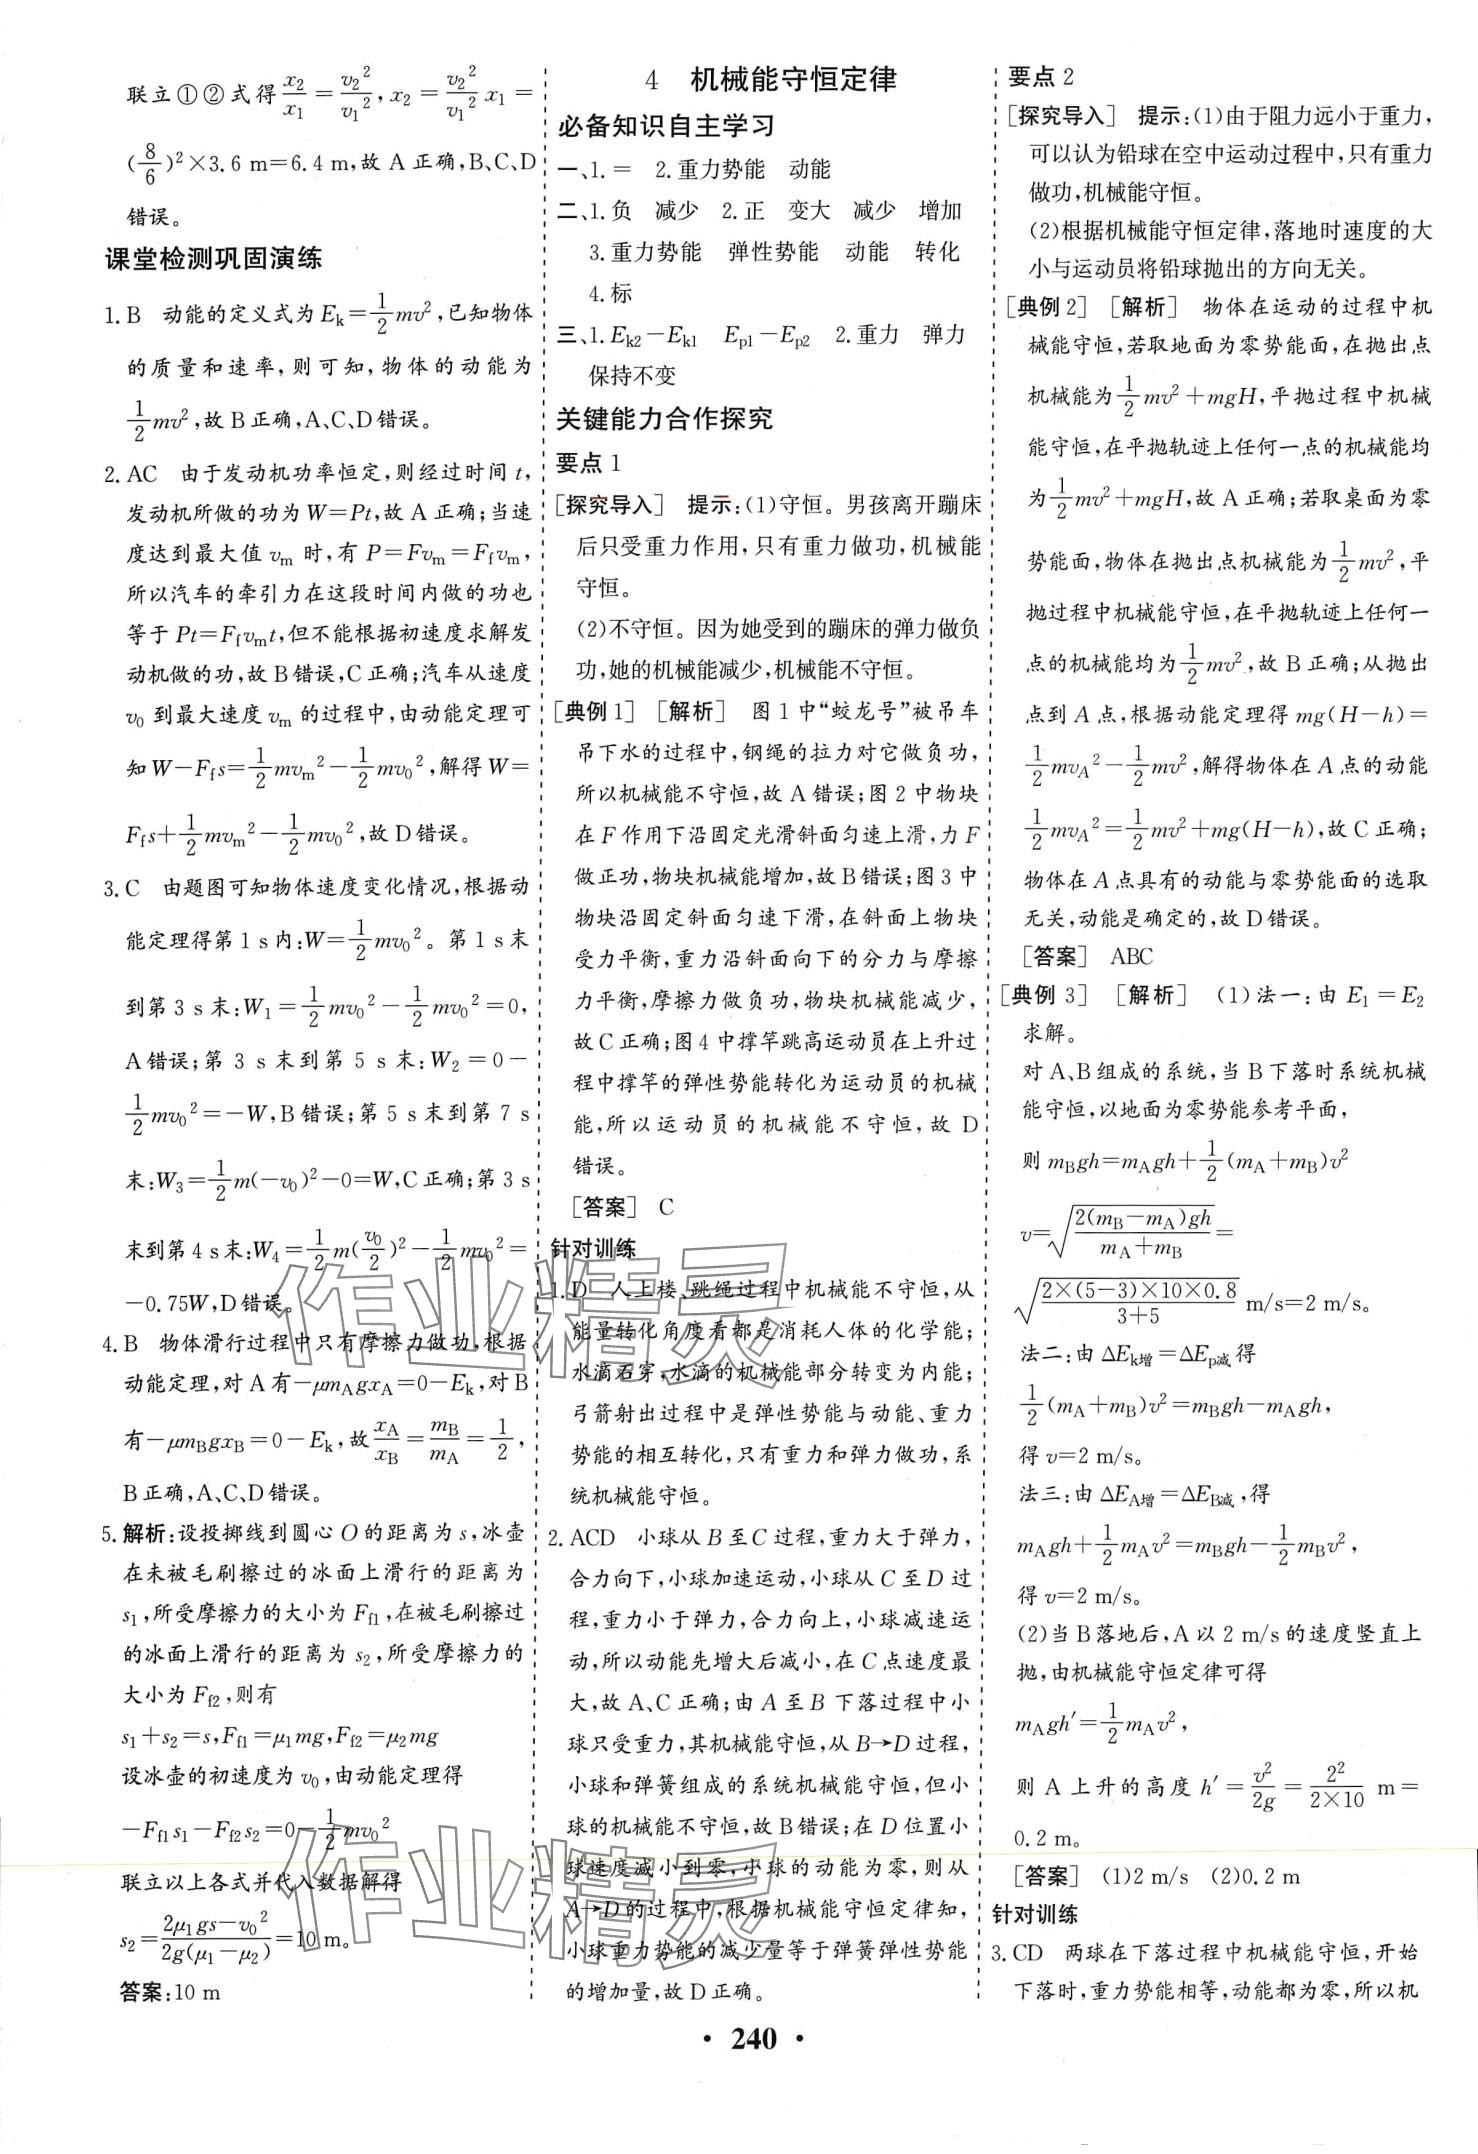 联立①②式得x₂/x₁=v₂²/v₁²,x₂=v₂²/v₁² x₁=
(8/6)²×3.6 m=6.4 m,故A正确,B、C、D
错误。
课堂检测巩固演练
1. B 动能的定义式为Eₖ=1/2mv²,已知物体
的质量和速率,则可知,物体的动能为
1/2mv²,故B正确,A、C、D错误。
2. AC 由于发动机功率恒定,则经过时间t,
发动机所做的功为W=Pt,故A正确;当速
度达到最大值vₘ时,有P=Fvₘ=F_f vₘ,
所以汽车的牵引力在这段时间内做的功也
等于Pt=F_f vₘt,但不能根据初速度求解发
动机做的功,故B错误,C正确;汽车从速度
v₀到最大速度vₘ的过程中,由动能定理可
知W-F_f s=1/2mvₘ²-1/2mv₀²,解得W=
F_f s+1/2mvₘ²-1/2mv₀²,故D错误。
3. C 由题图可知物体速度变化情况,根据动
能定理得第1 s内:W=1/2mv₀²。第1 s末
到第3 s末:W₁=1/2mv₀²-1/2mv₀²=0,
A错误;第3 s末到第5 s末:W₂=0-
1/2mv₀²=-W,B错误;第5 s末到第7 s
末:W₃=1/2m(-v₀)²-0=W,C正确;第3 s
末到第4 s末:W₄=1/2m(v₀/2)²-1/2mv₀²=
-0.75W,D错误。
4. B 物体滑行过程中只有摩擦力做功,根据
动能定理,对A有-μm_A gx_A=0-Eₖ,对B
有-μm_B gx_B=0-Eₖ,故x_A/x_B=m_B/m_A=1/2,
B正确,A、C、D错误。
5. 解析:设投掷线到圆心O的距离为s,冰壶
在未被毛刷擦过的冰面上滑行的距离为
s₁,所受摩擦力的大小为F_f1,在被毛刷擦过
的冰面上滑行的距离为s₂,所受摩擦力的
大小为F_f2,则有
s₁+s₂=s,F_f1=μ₁mg,F_f2=μ₂mg
设冰壶的初速度为v₀,由动能定理得
-F_f1 s₁-F_f2 s₂=0-1/2mv₀²
联立以上各式并代入数据解得
s₂=(2μ₁gs-v₀²)/(2g(μ₁-μ₂))=10 m。
答案:10 m
4 机械能守恒定律
必备知识自主学习
一、1.= 2.重力势能 动能
二、1.负 减少 2.正 变大 减少 增加
3.重力势能 弹性势能 动能 转化
4.标
三、1.Eₖ₂-Eₖ₁ Eₚ₁-Eₚ₂ 2.重力 弹力
保持不变
关键能力合作探究
要点1
[探究导入] 提示:(1)守恒。男孩离开蹦床
后只受重力作用,只有重力做功,机械能
守恒。
(2)不守恒。因为她受到的蹦床的弹力做负
功,她的机械能减少,机械能不守恒。
[典例1] [解析] 图1中“蛟龙号”被吊车
吊下水的过程中,钢绳的拉力对它做负功,
所以机械能不守恒,故A错误;图2中物块
在F作用下沿固定光滑斜面匀速上滑,力F
做正功,物块机械能增加,故B错误;图3中
物块沿固定斜面匀速下滑,在斜面上物块
受力平衡,重力沿斜面向下的分力与摩擦
力平衡,摩擦力做负功,物块机械能减少,
故C正确;图4中撑竿跳高运动员在上升过
程中撑竿的弹性势能转化为运动员的机械
能,所以运动员的机械能不守恒,故D
错误。
[答案] C
针对训练
1. D 人上楼、跳绳过程中机械能不守恒,从
能量转化角度看都是消耗人体的化学能;
水滴石穿,水滴的机械能部分转变为内能;
弓箭射出过程中是弹性势能与动能、重力
势能的相互转化,只有重力和弹力做功,系
统机械能守恒。
2. ACD 小球从B至C过程,重力大于弹力,
合力向下,小球加速运动,小球从C至D过
程,重力小于弹力,合力向上,小球减速运
动,所以动能先增大后减小,在C点速度最
大,故A、C正确;由A至B下落过程中小
球只受重力,其机械能守恒,从B→D过程,
小球和弹簧组成的系统机械能守恒,但小
球的机械能不守恒,故B错误;在D位置小
球速度减小到零,小球的动能为零,则从
A→D的过程中,根据机械能守恒定律知,
小球重力势能的减少量等于弹簧弹性势能
的增加量,故D正确。
要点2
[探究导入] 提示:(1)由于阻力远小于重力,
可以认为铅球在空中运动过程中,只有重力
做功,机械能守恒。
(2)根据机械能守恒定律,落地时速度的大
小与运动员将铅球抛出的方向无关。
[典例2] [解析] 物体在运动的过程中机
械能守恒,若取地面为零势能面,在抛出点
机械能为1/2mv²+mgH,平抛过程中机械
能守恒,在平抛轨迹上任何一点的机械能
为1/2mv²+mgH,故A正确;若取桌面为零
势能面,物体在抛出点机械能为1/2mv²,平
抛过程中机械能守恒,在平抛轨迹上任何一
点的机械能均为1/2mv²,故B正确;从抛出
点到A点,根据动能定理得mg(H-h)=
1/2mv_A²-1/2mv²,解得物体在A点的动能
1/2mv_A²=1/2mv²+mg(H-h),故C正确;
物体在A点具有的动能与零势能面的选取
无关,动能是确定的,故D错误。
[答案] ABC
[典例3] [解析] (1)法一:由E₁=E₂
求解。
对A、B组成的系统,当B下落时系统机械
能守恒,以地面为零势能参考平面,
则m_B gh=m_A gh+1/2(m_A+m_B)v²
v=√(2(m_B-m_A)gh/(m_A+m_B))=
√(2×(5-3)×10×0.8/(3+5)) m/s=2 m/s。
法二:由ΔEₖ增=ΔEₚ减得
1/2(m_A+m_B)v²=m_B gh-m_A gh,
得v=2 m/s。
法三:由ΔE_A增=ΔE_B减,得
m_A gh+1/2m_A v²=m_B gh-1/2m_B v²,
得v=2 m/s。
(2)当B落地后,A以2 m/s的速度竖直上
抛,由机械能守恒定律可得
m_A gh′=1/2m_A v²,
则A上升的高度h′=v²/2g=2²/(2×10) m=
0.2 m。
[答案] (1)2 m/s (2)0.2 m
针对训练
3. CD 两球在下落过程中机械能守恒,开始
下落时,重力势能相等,动能都为零,所以机
· 240 ·
作业精灵
作业精灵